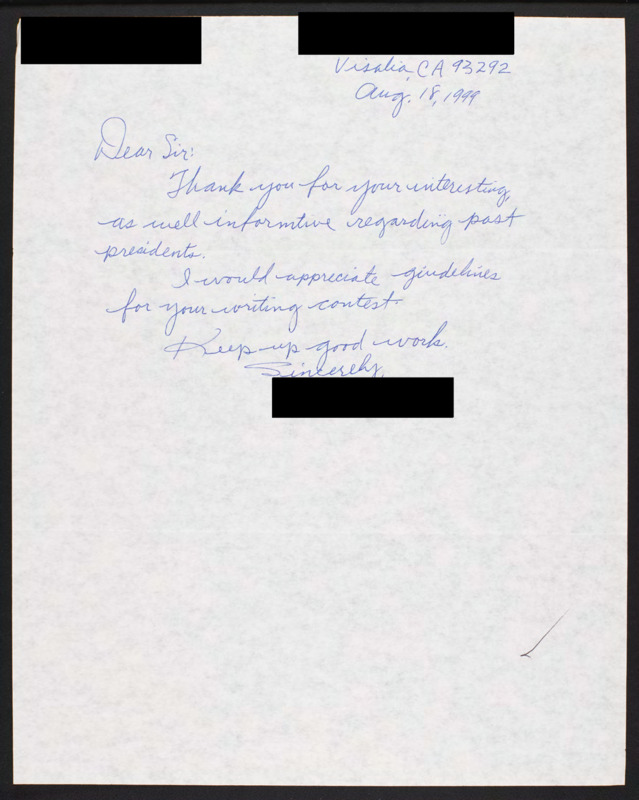 Visalia, CA 93292
Aug. 18, 1999
Dear Sir:
Thank you for your interesting,
as well informtive regarding past
presidents.
I would appreciate giudelines
for your writing contest.
Keep up good work.
Sincerely,